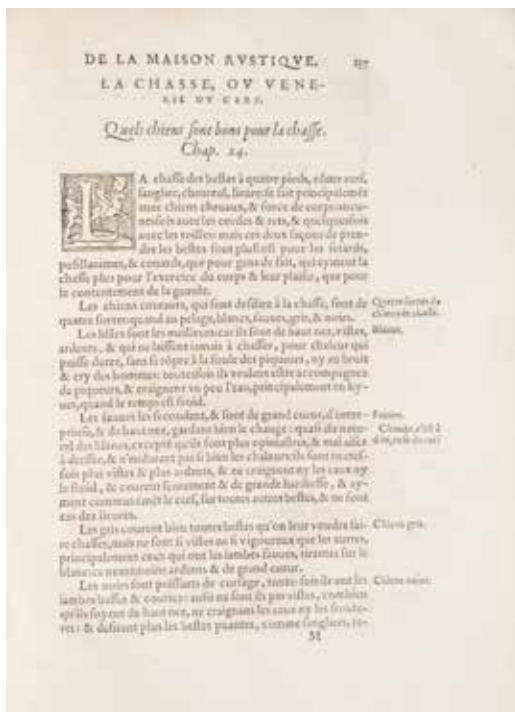 DE LA MAISON RVSTIQVE. 137
LA CHASSE, OV VENE-
RIE DV CERF.
Quels chiens sont bons pour la chasse.
Chap. 24.
LA chasse des bestes à quatre pieds, cerf,
sanglier, cheureul, lieure: se fait principalemẽt
auec chiens cheuaux, & force de corps: aucu-
auec les cordes & rets, & quelquesfois
auec les toilles: mais ces deux façons de pren-
dre les bestes sont plustost pour les
pusillanimes, & que pour gens de fait, qui ayment la
chasse plus pour l'exercice du corps & leur plaisir, que pour
le contentement de la gueule.
Les chiens courants, qui sont destinez à la chasse, sont de
quatre sortes quand au pelage, blancs, fauues, gris, & noirs.
Quatre sortes de
chiens de chasse.
Les blãcs sont les meilleurs: car ils sont de haut nez, vistes,
Blancs.
ardents, & qui ne laissent iamais à chasser, pour chaleur qui
puisse durer, sans se rõpre à la foule des piqueurs, ny au bruit
& cry des hommes: toutesfois ils veulent estre accompagnez
de piqueurs, & craignent vn peu l'eau, principalement en hy-
uer, quand le temps est froid.
Les fauues les secondent, & sont de grand cueur, d'entre-
Fauues.
prinse, & de haut nez, gardans bien le change: quasi du natu-
Change, c'est à
rel des blancs, excepté qu'ils sont plus opiniastres, & mal aisez
à dresser, & n'endurent pas si bien les chaleurs: ils sont
plus vistes & plus ardents, & ne craignent ny les eaux ny
le froid, & courent seurement & de grande hardiesse, & ay-
ment communémẽt le cerf, sur toutes autres bestes, & ne font
cas des lieures.
Les gris courent bien toutes bestes qu'on leur voudra fai-
Chiens gris.
re chasser, mais ne sont si vistes ne si vigoureux que les autres,
principalement ceux qui ont les iambes fauues, tirantes sur le
blanc: neantmoins ardents & de grand cœur.
Les noirs sont puissants de corsage, toutesfois ils ont les
Chiens noirs.
iambes basses & courtes: aussi ne sont ils pas vistes, combien
qu'ils soyent de haut nez, ne craignans les eaux ny les froidu-
res: & desirent plus les bestes puantes, comme sangliers, re-
M